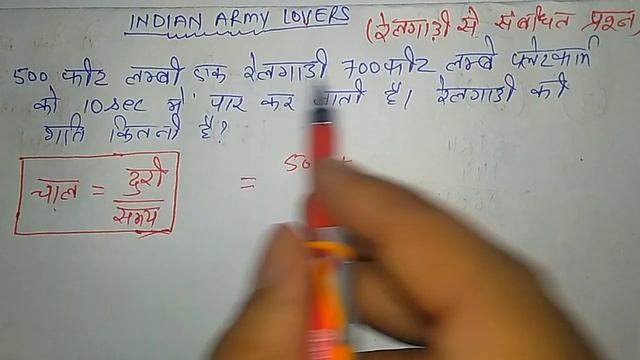 INDIAN ARMY LOVERS
(रेलगाडी से संबंधित प्रश्न)
500 फीट लम्बी एक रेलगाडी 700 फीट लम्बे प्लेटफार्म
को 10 sec में पार कर जाती है। रेलगाडी की
गति कितनी है?
चाल = दुरी / समय
= 50